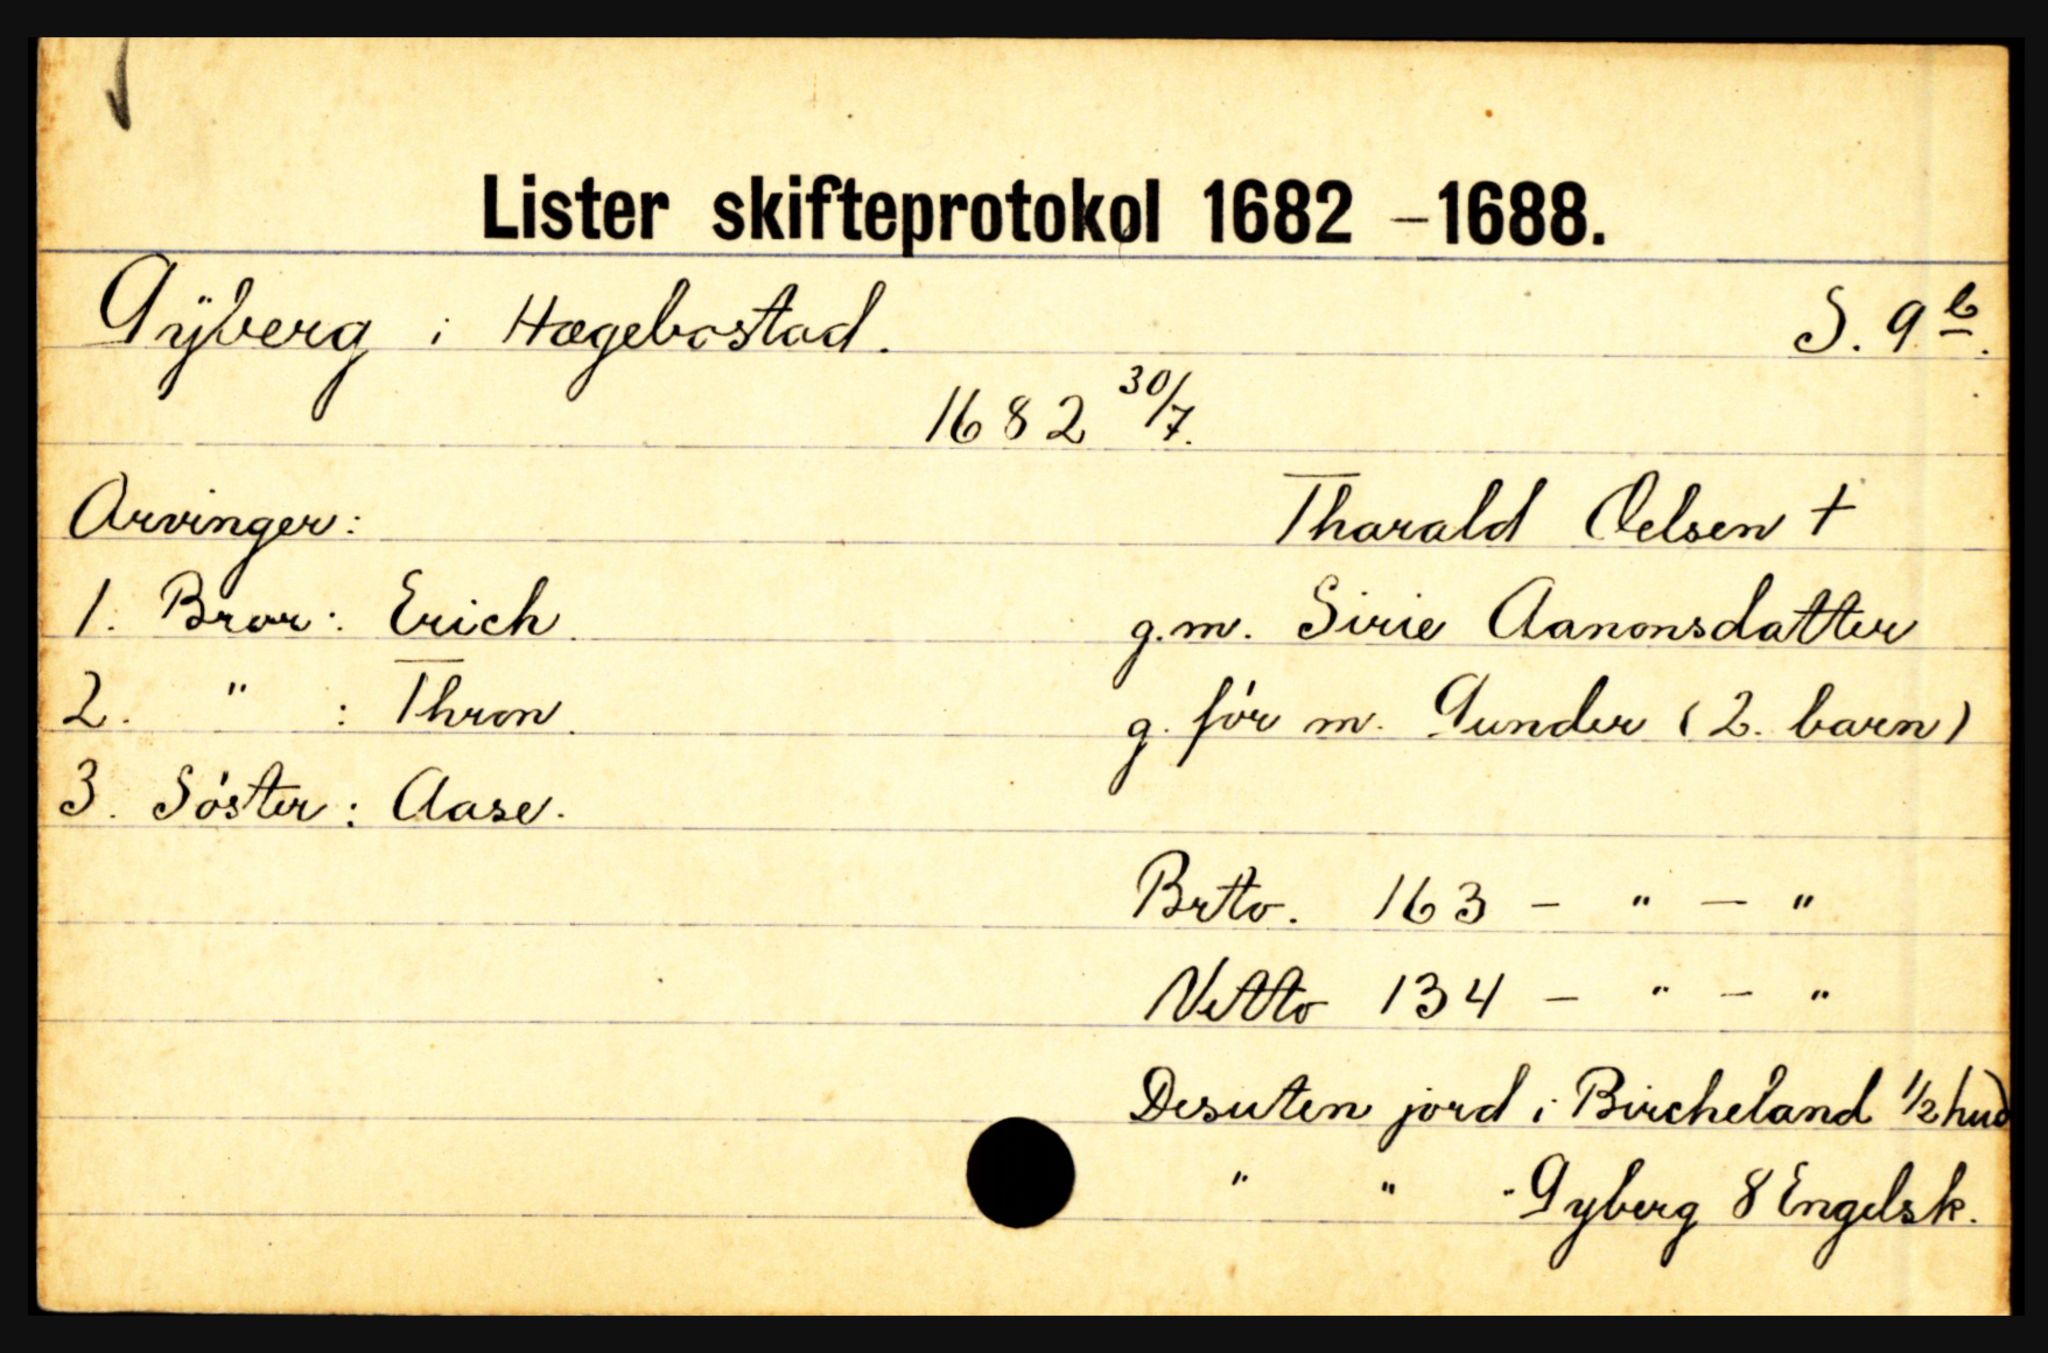 Lister skifteprotokol 1682 – 1688.
Gÿberg i Hægebostad. S. 9 b.
1682 30/7.
Arvinger: Tharald Oelsen †
1. Bror: Erich. g.m. Sirie Aanonsdatter
2. " : Thron. g. för m. Gunder (2. barn)
3. Söster: Aase.
Brto. 163 – " – "
Netto 134 – " – "
Desuten jord i Bircheland 1/2 hud
" " " Gyberg 8 Engelsk.